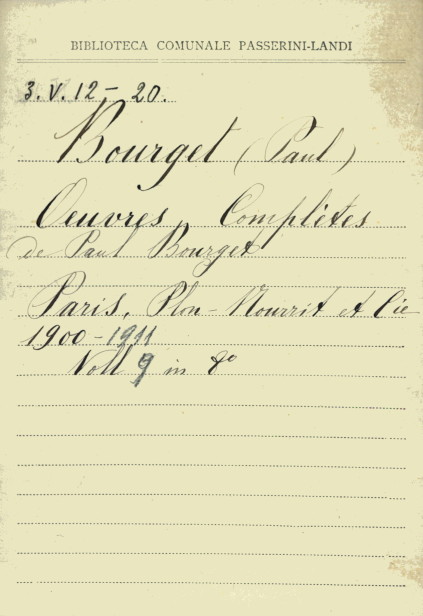 BIBLIOTECA COMUNALE PASSERINI-LANDI
3. V. 12 - 20.
Bourget (Paul)
Oeuvres Complètes
de Paul Bourget
Paris, Plon-Nourrit et Cie
1900-1911
Voll 9 in 8º